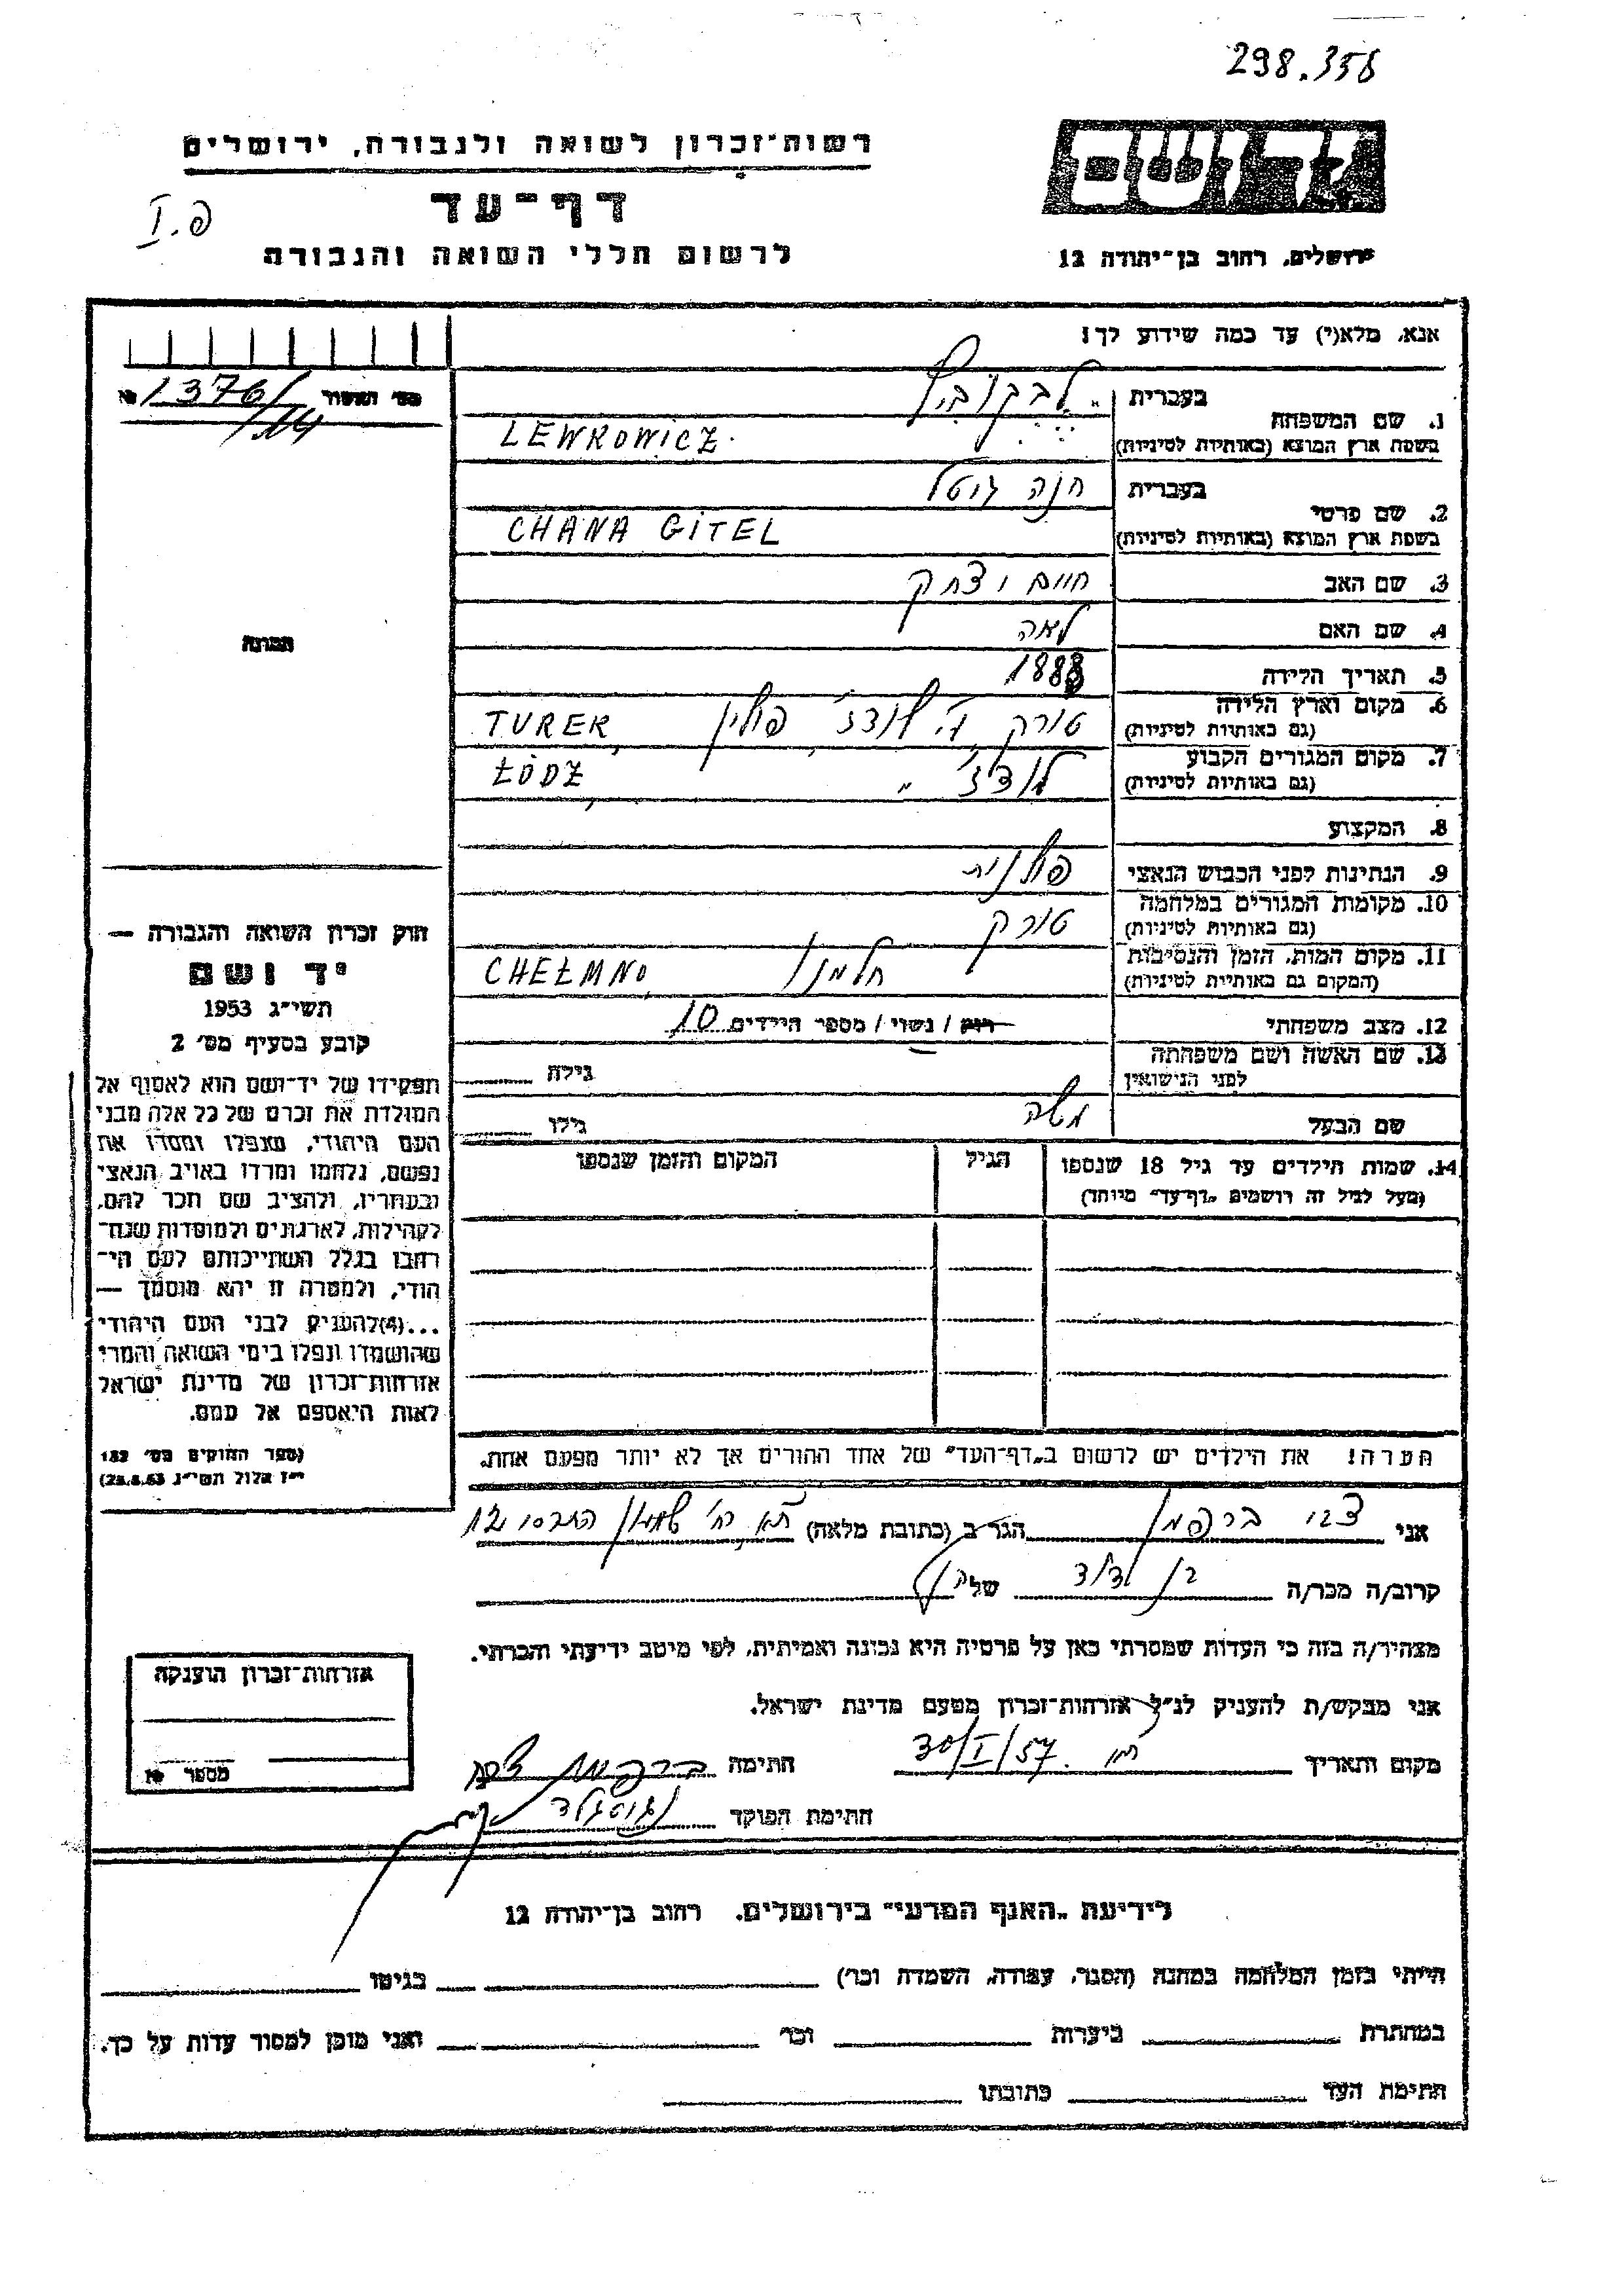 298.356
רשות־זכרון לשואה ולגבורה, ירושלים
דף־עד
לרשום חללי השואה והגבורה
פ.I
יד ושם
ירושלים, רחוב בן־יהודה 12
אנא, מלא(י) עד כמה שידוע לך!
מס' האשור 1376/14 №
1. שם המשפחה
בעברית לבקוביץ
בשפת ארץ המוצא (באותיות לטיניות) LEWKOWICZ
2. שם פרטי
בעברית חנה גיטל
בשפת ארץ המוצא (באותיות לטיניות) CHANA GITEL
3. שם האב חיים יצחק
4. שם האם לאה
5. תאריך הלידה 1888
6. מקום וארץ הלידה טורק, ג. לודז', פולין TUREK,
(גם באותיות לטיניות)
7. מקום המגורים הקבוע לודז' „ ŁÓDŹ,
(גם באותיות לטיניות)
8. המקצוע
9. הנתינות לפני הכבוש הנאצי פולנית
10. מקומות המגורים במלחמה טורק
(גם באותיות לטיניות)
11. מקום המות, הזמן והנסיבות חלמנו CHEŁMNO,
(המקום גם באותיית לטיניות)
12. מצב משפחתי רוק / נשוי / מספר הילדים 10
13. שם האשה ושם משפחתה
לפני הנישואין
גילה
שם הבעל משה
גילו
14. שמות הילדים עד גיל 18 שנספו
(מעל לגיל זה רושמים „דף־עד" מיוחד)
הגיל
המקום והזמן שנספו
הערה! את הילדים יש לרשום ב„דף־העד" של אחד ההורים אך לא יותר מפעם אחת.
תמונה
חוק זכרון השואה והגבורה —
יד ושם
תשי״ג 1953
קובע בסעיף מס' 2
תפקידו של יד־ושם הוא לאסוף אל
המולדת את זכרם של כל אלה מבני
העם היהודי, שנפלו ומסרו את
נפשם, נלחמו ומרדו באויב הנאצי
ובעוזריו, ולהציב שם וזכר להם,
לקהילות, לארגונים ולמוסדות שנח־
רבו בגלל השתייכותם לעם הי־
הודי, ולמטרה זו יהא מוסמך —
...(4)להעניק לבני העם היהודי
שהושמדו ונפלו בימי השואה והמרי
אזרחות־זכרון של מדינת ישראל
לאות היאספם אל עמם.
(ספר החוקים מס' 132
י״ז אלול תשי״ג 28.8.53)
אני צבי ברקמן הגר ב (כתובת מלאה)
קרוב/ה מכר/ה בן דוד של
מצהיר/ה בזה כי העדות שמסרתי כאן על פרטיה היא נכונה ואמיתית, לפי מיטב ידיעתי והכרתי.
אני מבקש/ת להעניק לנ״ל אזרחות־זכרון מטעם מדינת ישראל.
מקום ותאריך 30/I/57 חתימה
חתימת הפוקד
אזרחות־זכרון הוענקה
מספר №
לידיעת „האגף המדעי" בירושלים. רחוב בן־יהודה 12
הייתי בזמן המלחמה במחנה (הסגר, עבודה, השמדה וכו') בגיטו
במחתרת ביערות וכו' ואני מוכן למסור עדות על כך.
חתימת העד כתובתו